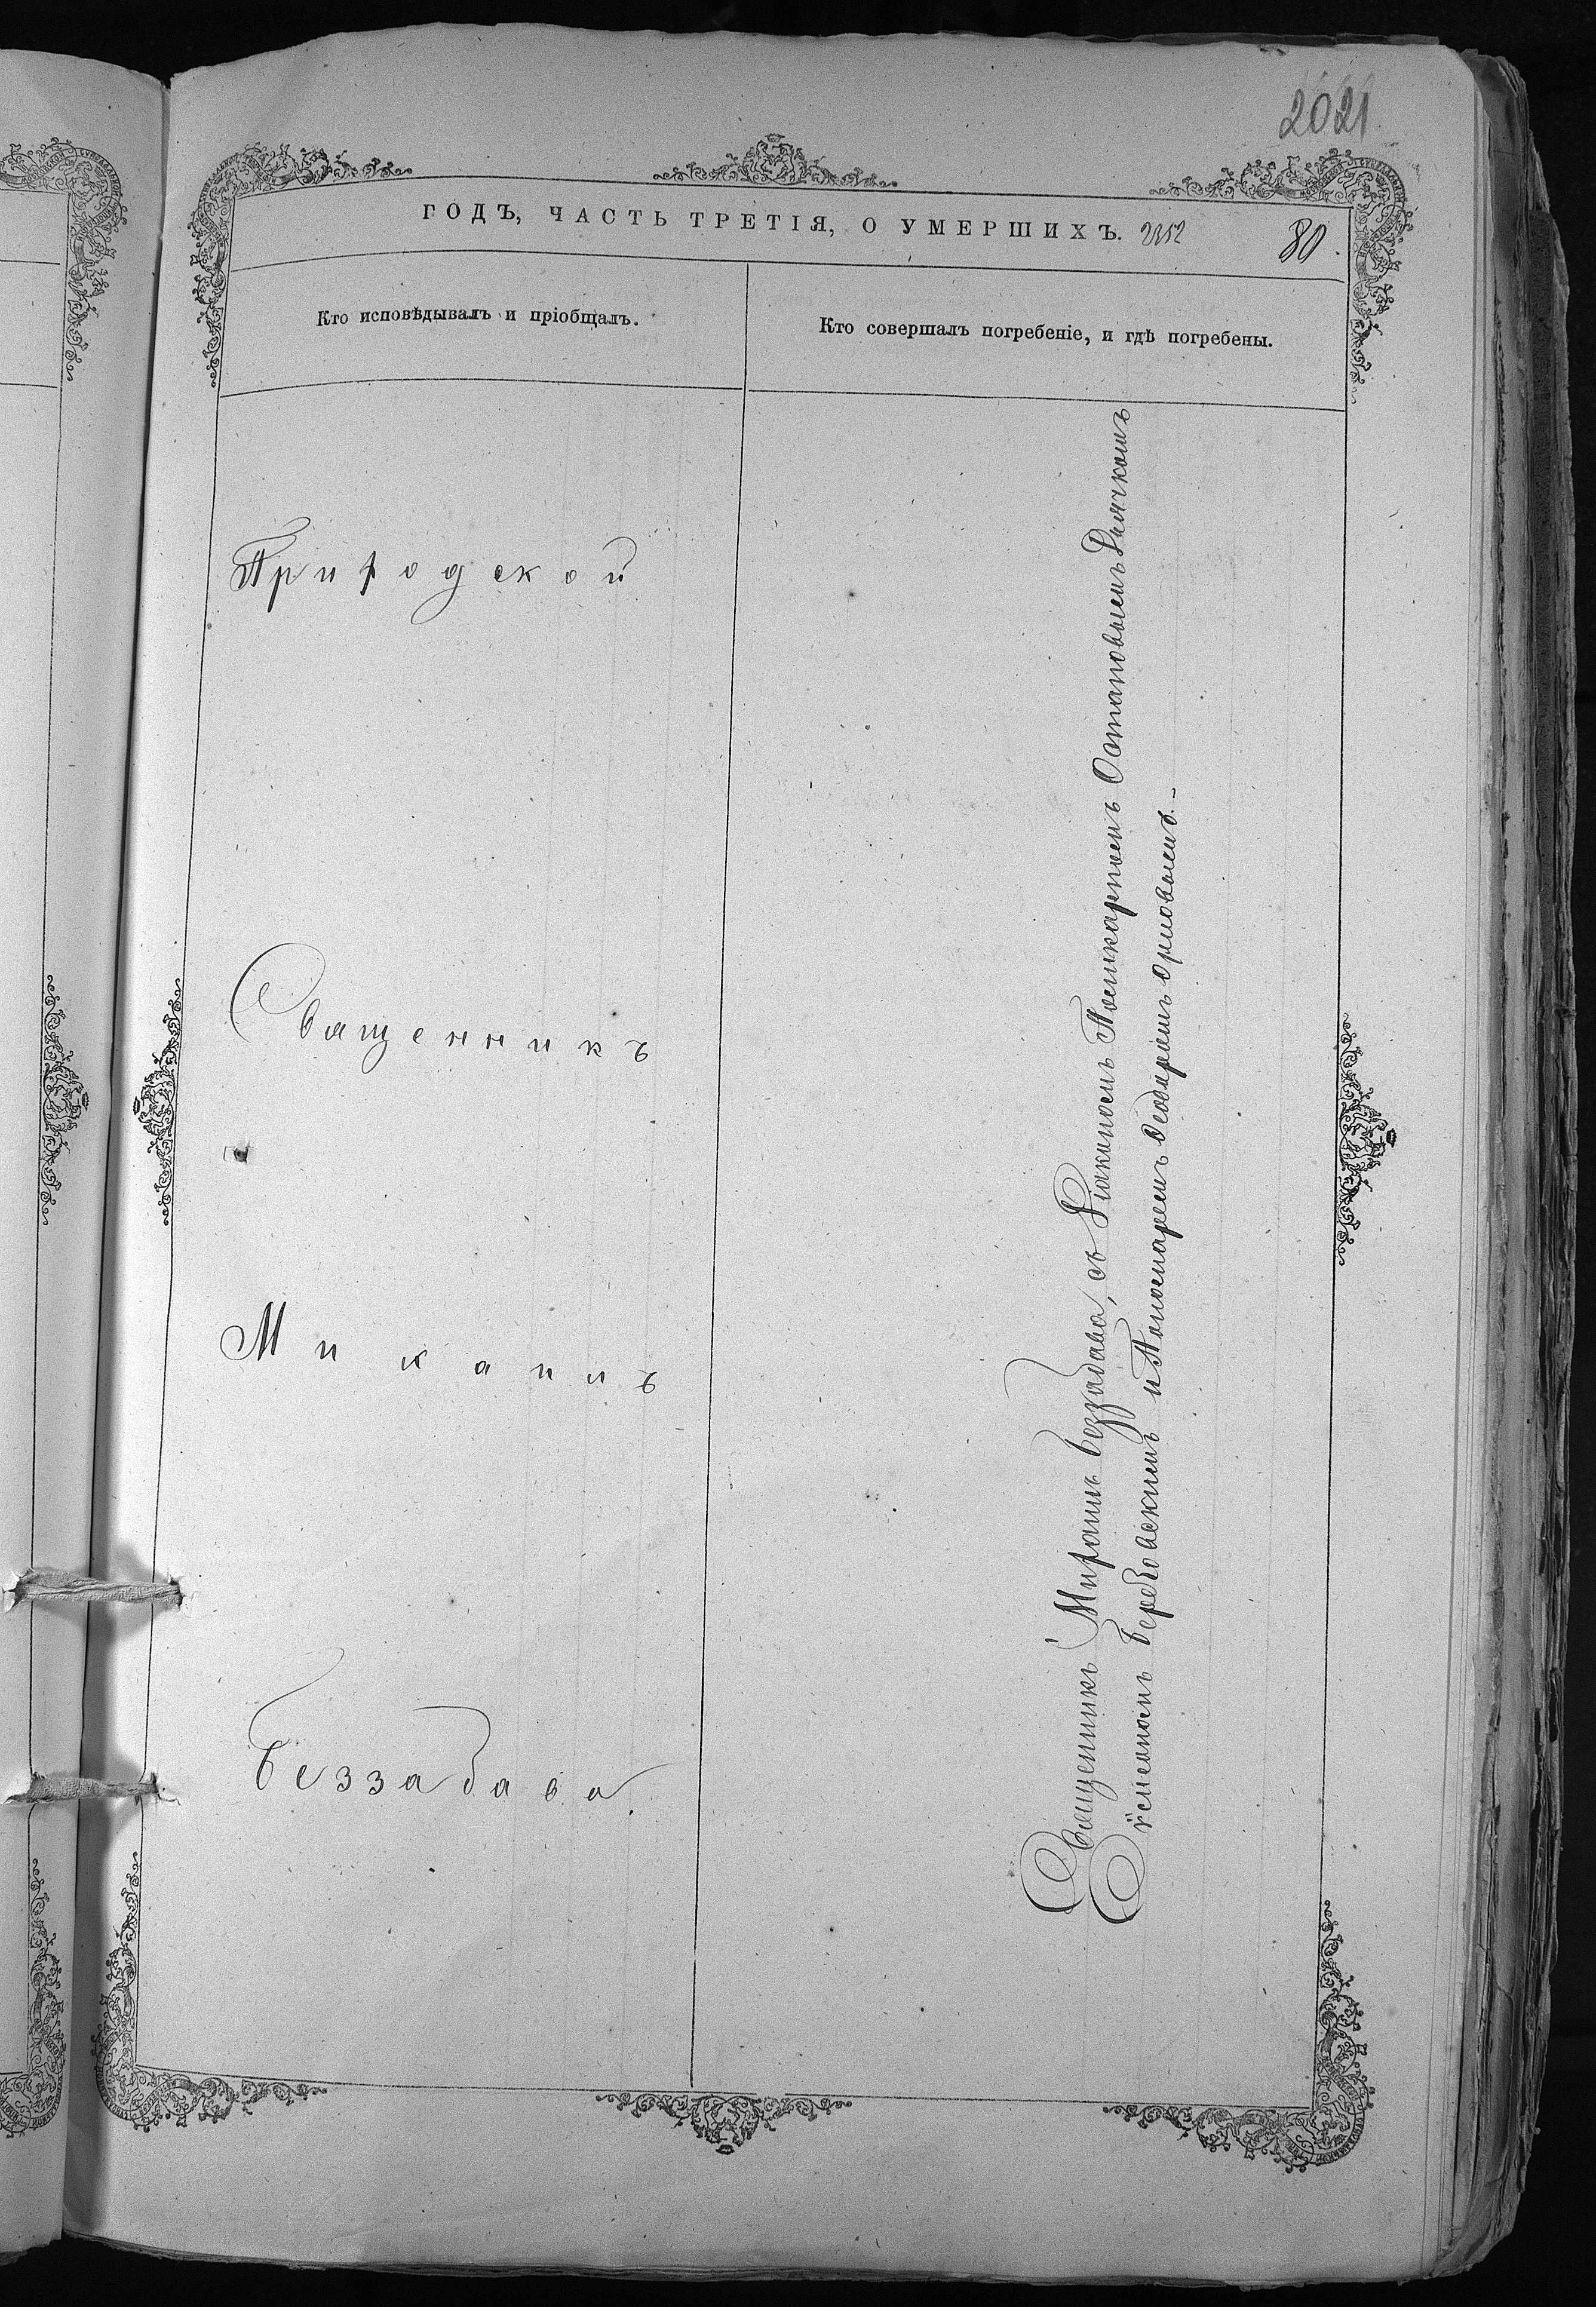 2021
ГОДЪ, ЧАСТЬ ТРЕТІЯ, О УМЕРШИХЪ. 2352
80
Кто исповѣдывалъ и пріобщалъ.
Кто совершалъ погребеніе, и гдѣ погребены.
Приходской
Священникъ
Михаилъ
Беззабава.
Священникъ Михаилъ Беззабава, съ Діакономъ Поликарпомъ Остаповымъ Дьячкомъ
Береговскимъ и Пономаремъ Орловымъ.